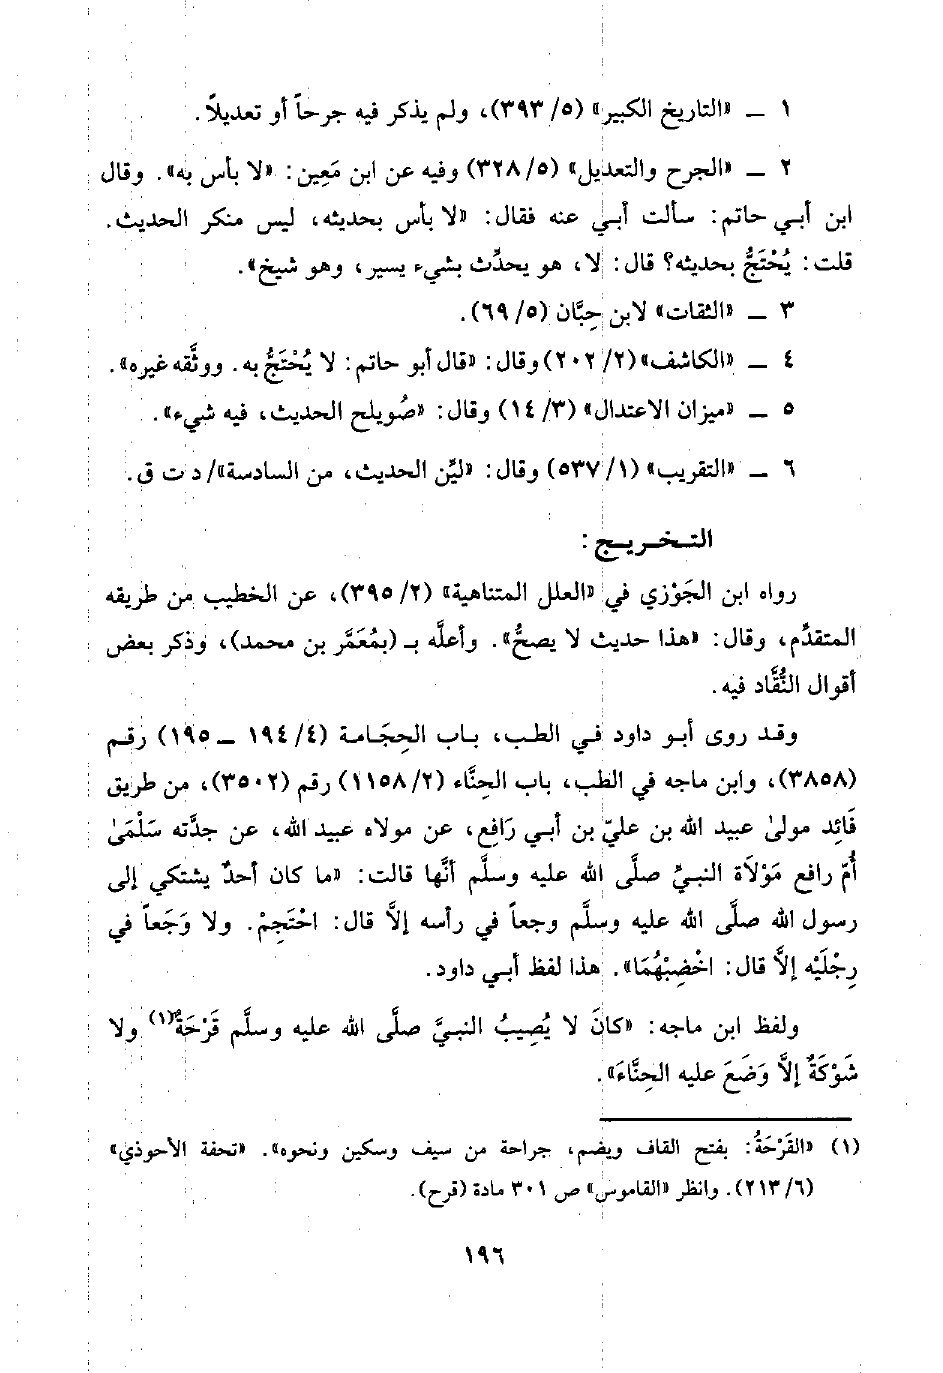 ١ ــ «التاريخ الكبير» (٥/ ٣٩٣)، ولم يذكر فيه جرحاً أو تعديلاً.
٢ ــ «الجرح والتعديل» (٥/ ٣٢٨) وفيه عن ابن مَعِين: «لا بأس به». وقال
ابن أبـي حاتم: سألت أبـي عنه فقال: «لا بأس بحديثه، ليس منكر الحديث.
قلت: يُحْتَجُّ بحديثه؟ قال: لا، هو يحدِّث بشيء يسير، وهو شيخ».
٣ ــ «الثقات» لابن حِبَّان (٥/ ٦٩).
٤ ــ «الكاشف» (٢/ ٢٠٢) وقال: «قال أبو حاتم: لا يُحْتَجُّ به. ووثَّقه غيره».
٥ ــ «ميزان الاعتدال» (٣/ ١٤) وقال: «صُويلح الحديث، فيه شيء».
٦ ــ «التقريب» (١/ ٥٣٧) وقال: «ليِّن الحديث، من السادسة»/ د ت ق.
التـخـريـج:
رواه ابن الجَوْزي في «العلل المتناهية» (٢/ ٣٩٥)، عن الخطيب من طريقه
المتقدِّم، وقال: «هذا حديث لا يصحُّ». وأعلَّه بـ (بمُعَمَّر بن محمد)، وذكر بعض
أقوال النُّقَّاد فيه.
وقـد روى أبـو داود فـي الطـب، بـاب الحِجَـامـة (٤/ ١٩٤ ــ ١٩٥) رقـم
(٣٨٥٨)، وابن ماجه في الطب، باب الحِنَّاء (٢/ ١١٥٨) رقم (٣٥٠٢)، من طريق
فَائِد مولىٰ عبيد الله بن عليّ بن أبـي رَافِع، عن مولاه عبيد الله، عن جدَّته سَلْمَىٰ
أُمّ رافع مَوْلَاة النبـيِّ صلَّى الله عليه وسلَّم أنَّها قالت: «ما كان أحدٌ يشتكي إلى
رسول الله صلَّى الله عليه وسلَّم وجعاً في رأسه إلاَّ قال: احْتَجِمْ. ولا وَجَعاً في
رِجْلَيْه إلاَّ قال: اخْضِبْهُمَا». هذا لفظ أبـي داود.
ولفظ ابن ماجه: «كانَ لا يُصِيبُ النبـيَّ صلَّى الله عليه وسلَّم قَرْحَةٌ(١) ولا
شَوْكَةٌ إلاَّ وَضَعَ عليه الحِنَّاءَ».
(١) «القَرْحَةُ: بفتح القاف ويضم، جراحة من سيف وسكين ونحوه». «تحفة الأحوذي»
(٦/ ٢١٣). وانظر «القاموس» ص ٣٠١ مادة (قرح).
١٩٦